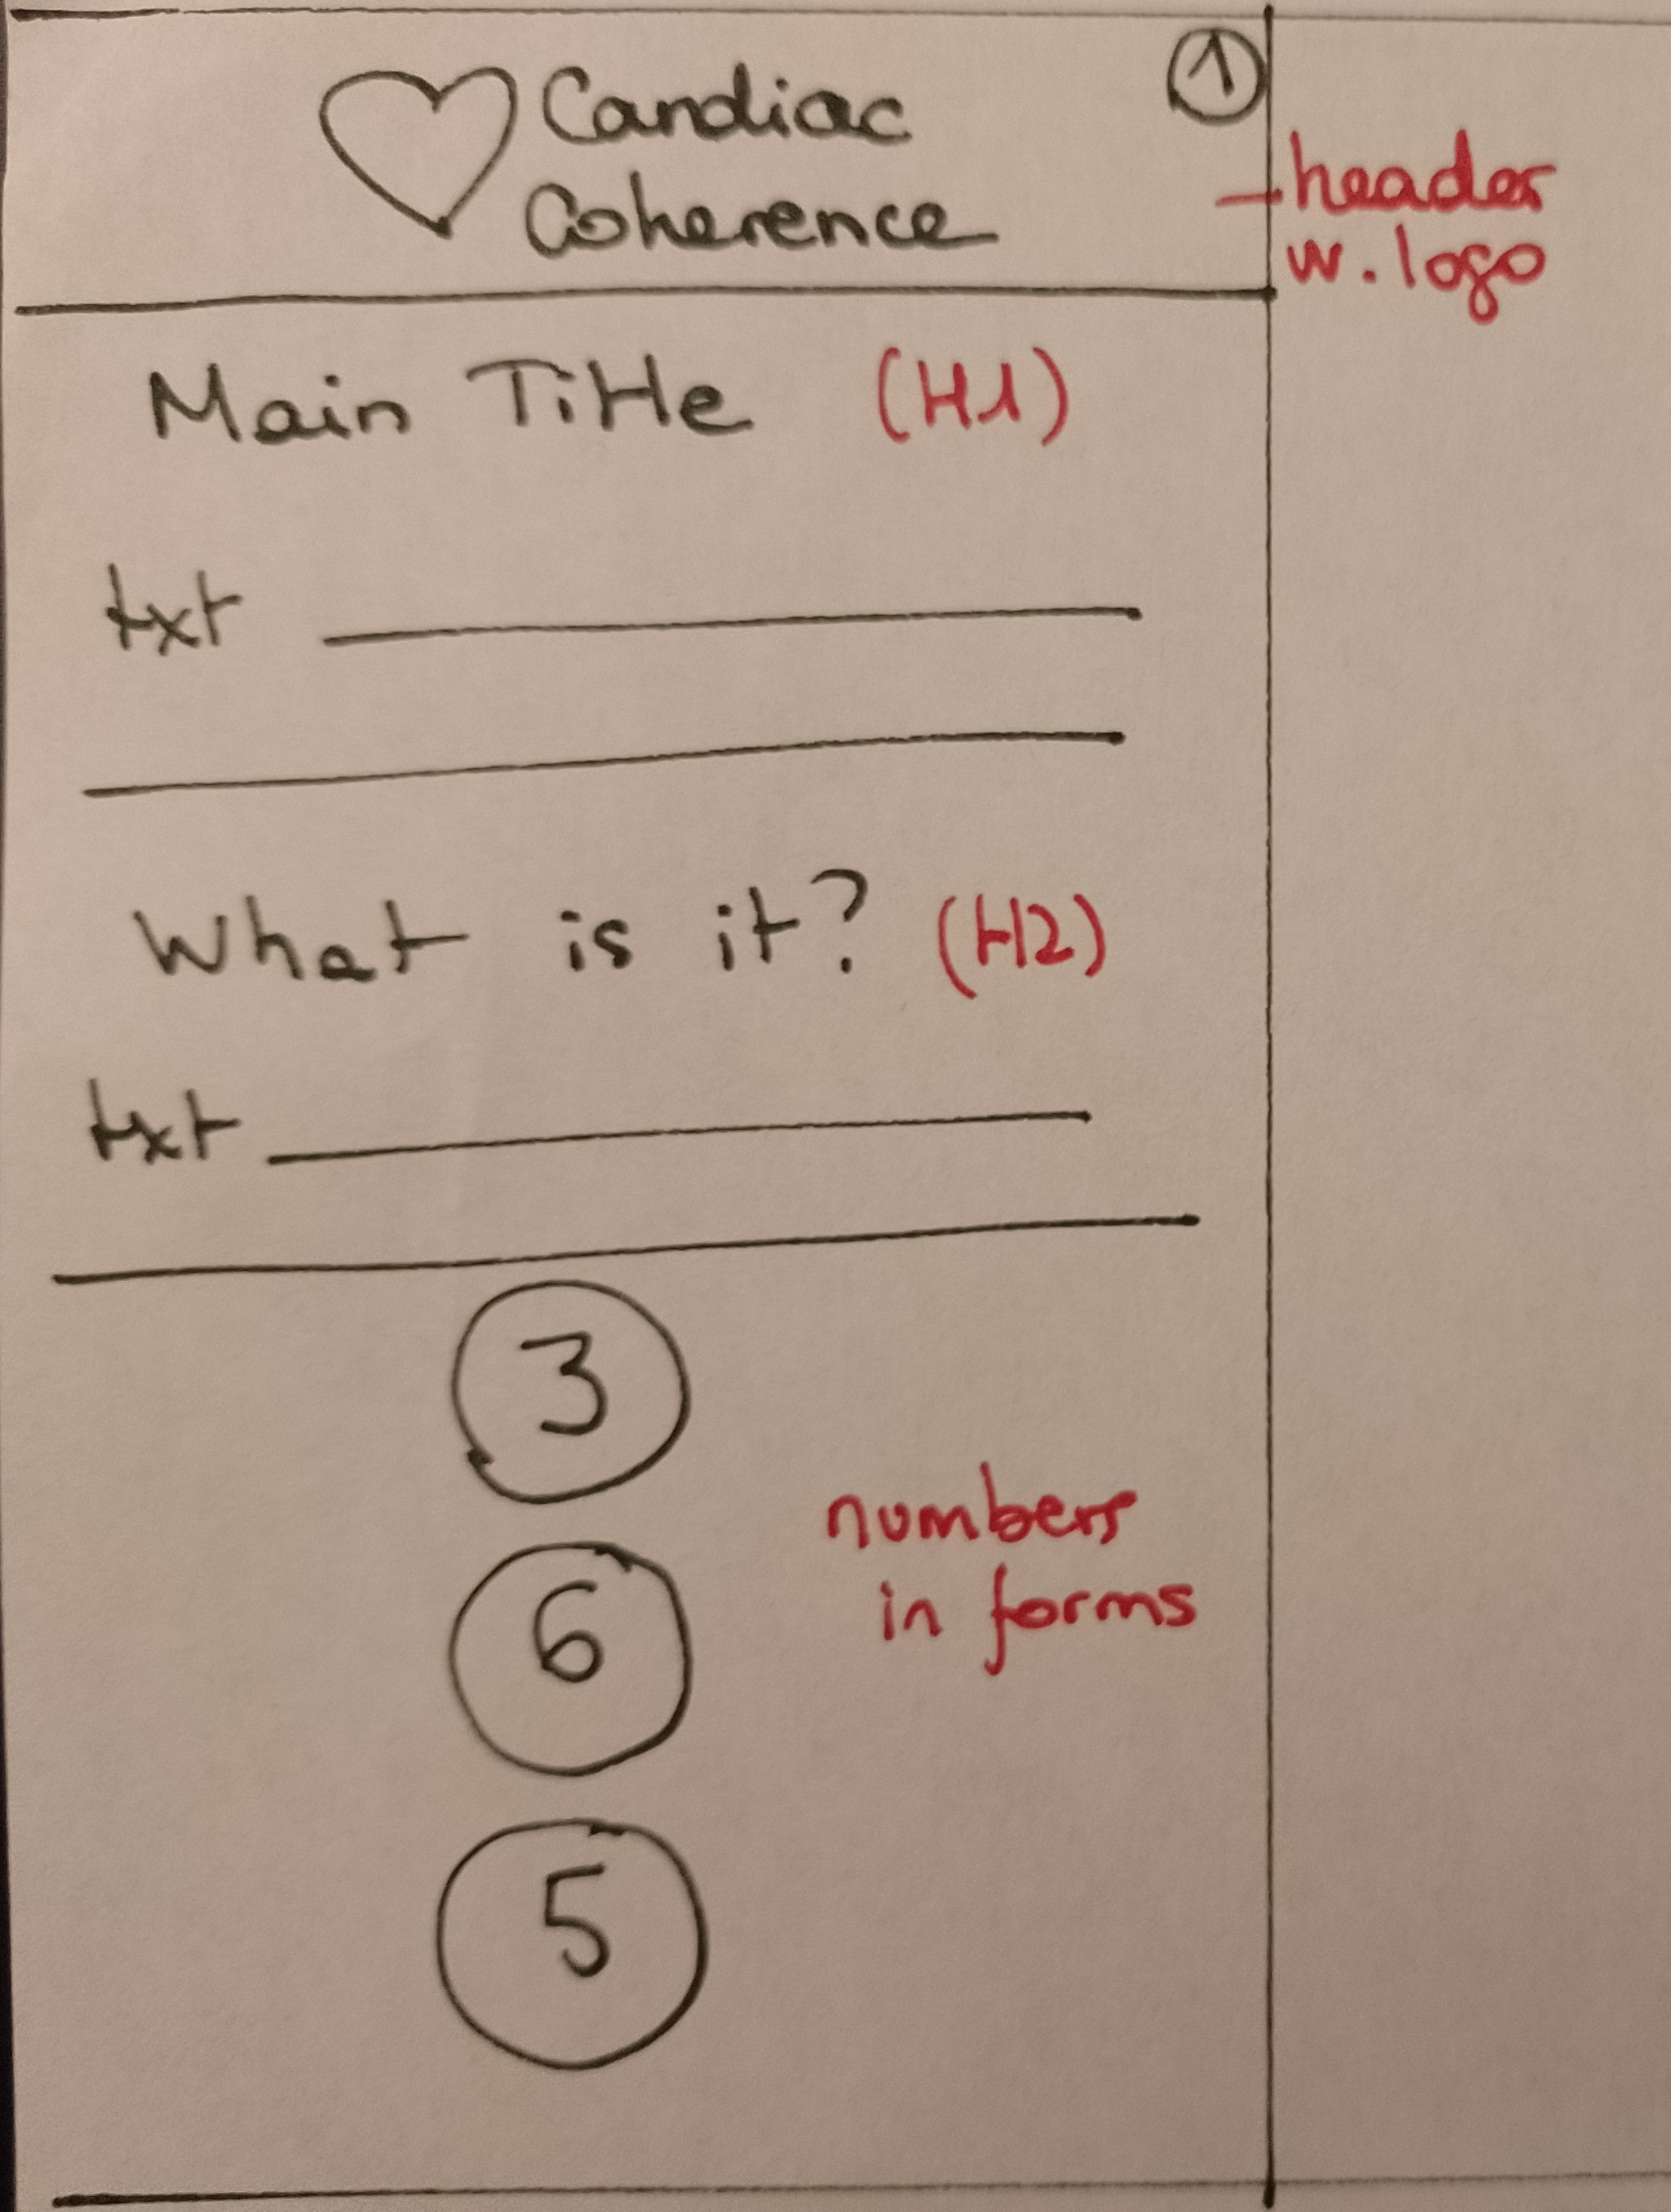 1
Cardiac
Coherence
header
w. logo
Main Title (H1)
txt
What is it? (H2)
txt
3
numbers
in forms
6
5